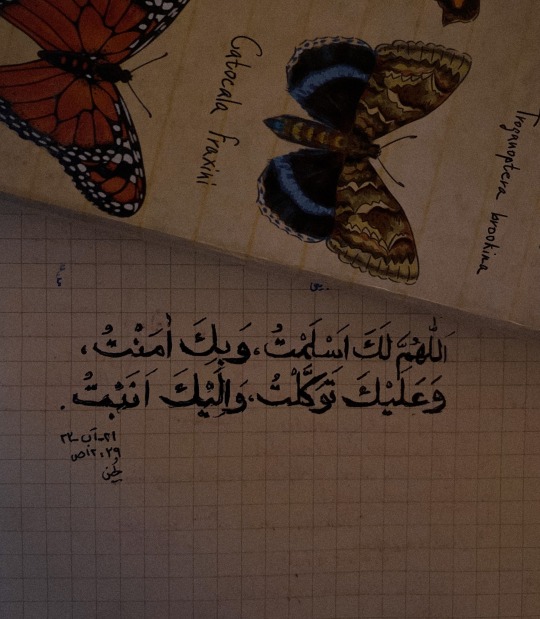 Catocala fraxini
Trogonoptera brookiana
اَللّٰهُمَّ لَكَ اَسْلَمْتُ، وَبِكَ اٰمَنْتُ،
وَعَلَيْكَ تَوَكَّلْتُ، وَاِلَيْكَ اَنَبْتُ.
٢١-آب-٢٢
١٢:٢٩ص